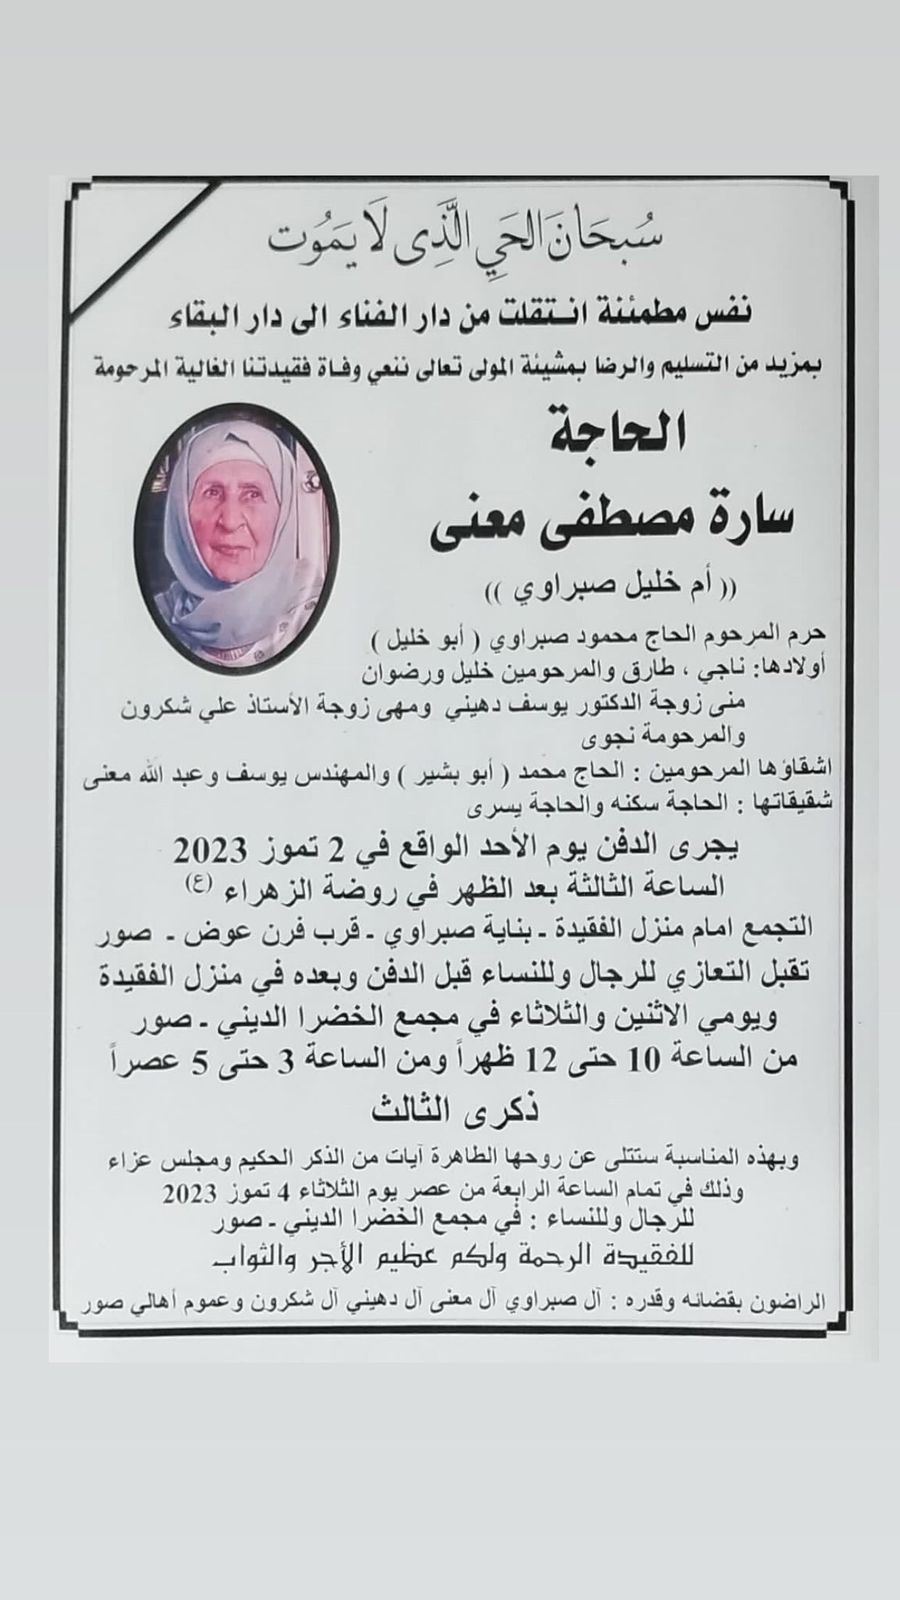 سُبحَانَ الحَيِ الَّذِى لَا يَمَوُت
نفس مطمئنة انتقلت من دار الفناء الى دار البقاء
بمزيد من التسليم والرضا بمشيئة المولى تعالى ننعي وفاة فقيدتنا الغالية المرحومة
الحاجة
سارة مصطفى معنى
(( أم خليل صبراوي ))
حرم المرحوم الحاج محمود صبراوي ( أبو خليل )
أولادها: ناجي ، طارق والمرحومين خليل ورضوان
منى زوجة الدكتور يوسف دهيني ومهى زوجة الأستاذ علي شكرون
والمرحومة نجوى
اشقاؤها المرحومين : الحاج محمد ( أبو بشير ) والمهندس يوسف وعبد الله معنى
شقيقاتها : الحاجة سكنه والحاجة يسرى
يجرى الدفن يوم الأحد الواقع في 2 تموز 2023
الساعة الثالثة بعد الظهر في روضة الزهراء (ع)
التجمع امام منزل الفقيدة - بناية صبراوي - قرب فرن عوض - صور
تقبل التعازي للرجال وللنساء قبل الدفن وبعده في منزل الفقيدة
ويومي الاثنين والثلاثاء في مجمع الخضرا الديني - صور
من الساعة 10 حتى 12 ظهراً ومن الساعة 3 حتى 5 عصراً
ذكرى الثالث
وبهذه المناسبة ستتلى عن روحها الطاهرة آيات من الذكر الحكيم ومجلس عزاء
وذلك في تمام الساعة الرابعة من عصر يوم الثلاثاء 4 تموز 2023
للرجال وللنساء : في مجمع الخضرا الديني - صور
للفقيدة الرحمة ولكم عظيم الأجر والثواب
الراضون بقضائه وقدره : آل صبراوي آل معنى آل دهيني آل شكرون وعموم أهالي صور